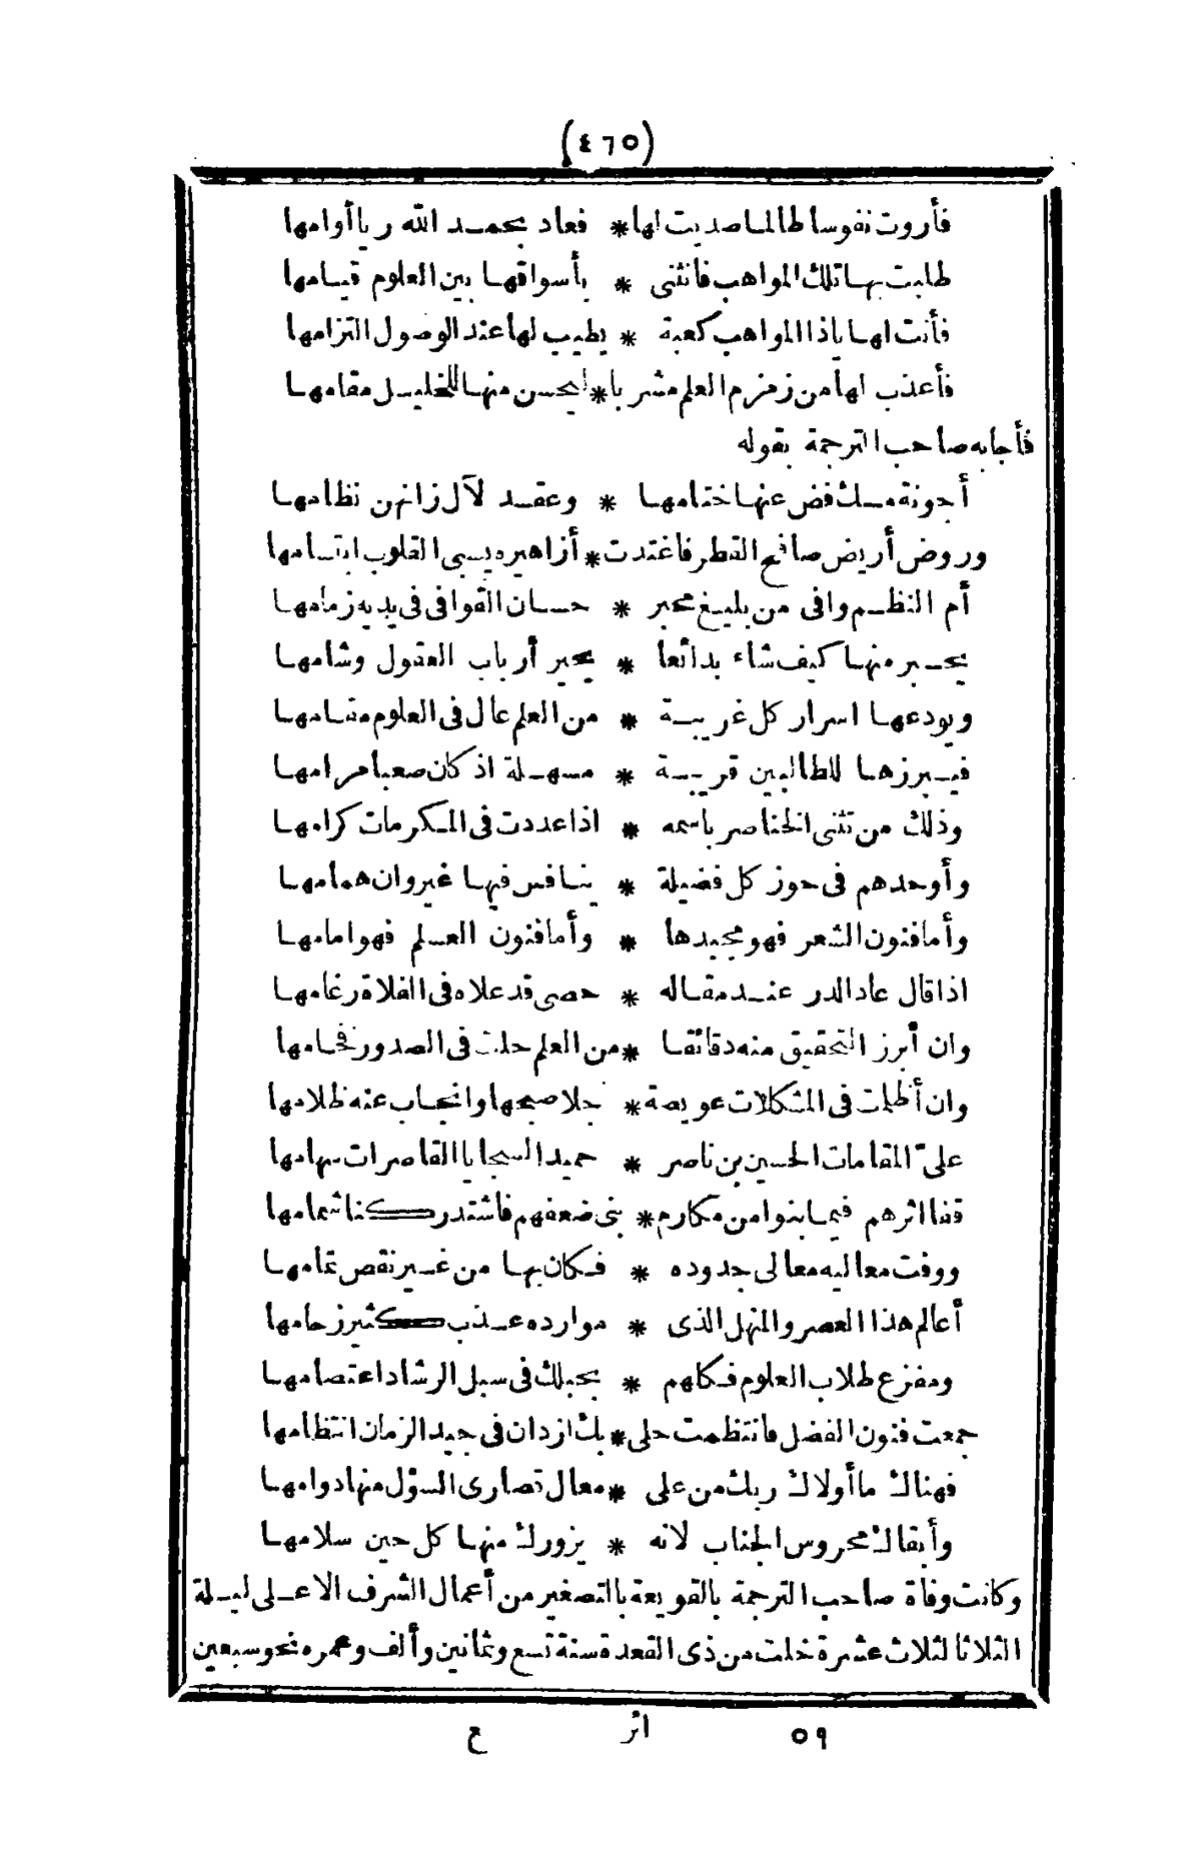 (٤٦٥)
فأروت نفوسا طالما صديت لها * فعاد بحمد الله ريا أوامها
طلبت بها تلك المواهب فانثنى * بأسواقها بين العلوم قيامها
فأنت لها ياذا المواهب كعبة * يطيب لها عند الوصول التزامها
فأعذب لها من زمزم العلم مشربا * ليحسن منها للخليل مقامها
فأجابه صاحب الترجمة بقوله
أجونة مسك فض عنها ختامها * وعقد لآل زانهن نظامها
وروض أريض صافح القطر فاغتدت * أزاهيره يسبى القلوب ابتسامها
أم النظم وافى من بليغ محبر * حسان القوافى فى يديه زمامها
يحبر منها كيف شاء بدائعا * يحير أرباب العقول وشامها
ويودعها اسرار كل غريبة * من العلم عال فى العلوم مقامها
فيبرزها للطالبين قريبة * مسهلة اذ كان صعبا مرامها
وذلك من تثنى الخناصر باسمه * اذا عددت فى المكرمات كرامها
وأوحدهم فى حوز كل فضيلة * ينافس فيها غير وان همامها
وأما فنون الشعر فهو مجيدها * وأما فنون العلم فهو امامها
اذا قال عاد الدر عند مقاله * حصى قد علاه فى الفلاة رغامها
وان أبرز التحقيق منه دقائقا * من العلم حلت فى الصدور فخامها
وان أظلمت فى المشكلات عويصة * جلا صبحها وانجاب عنه ظلامها
علىّ المقامات الحسين بن ناصر * حميد السجايا القاصرات سهامها
قفا اثرهم فيما بنوا من مكارم * بنى ضعفهم فاشتد ركنا شمامها
ووفت معاليه معالى جدوده * فكان بها من غير نقص تمامها
أعالم هذا العصر والمنهل الذى * موارده عذب كثير زحامها
ومفزع طلاب العلوم فكلهم * بحبلك فى سبل الرشاد اعتصامها
جمعت فنون الفضل فانتظمت حلى * بك ازدان فى جيد الزمان انتظامها
فهناك ما أولاك ربك من على * معال قصارى السؤل منها دوامها
وأبقاك محروس الجناب لانه * يزورك منها كل حين سلامها
وكانت وفاة صاحب الترجمة بالقويعة بالتصغير من أعمال الشرف الاعلى ليلة
الثلاثا لثلاث عشرة خلت من ذى القعدة سنة تسع وثمانين وألف وعمره نحو سبعين
٥٩ اثر ع